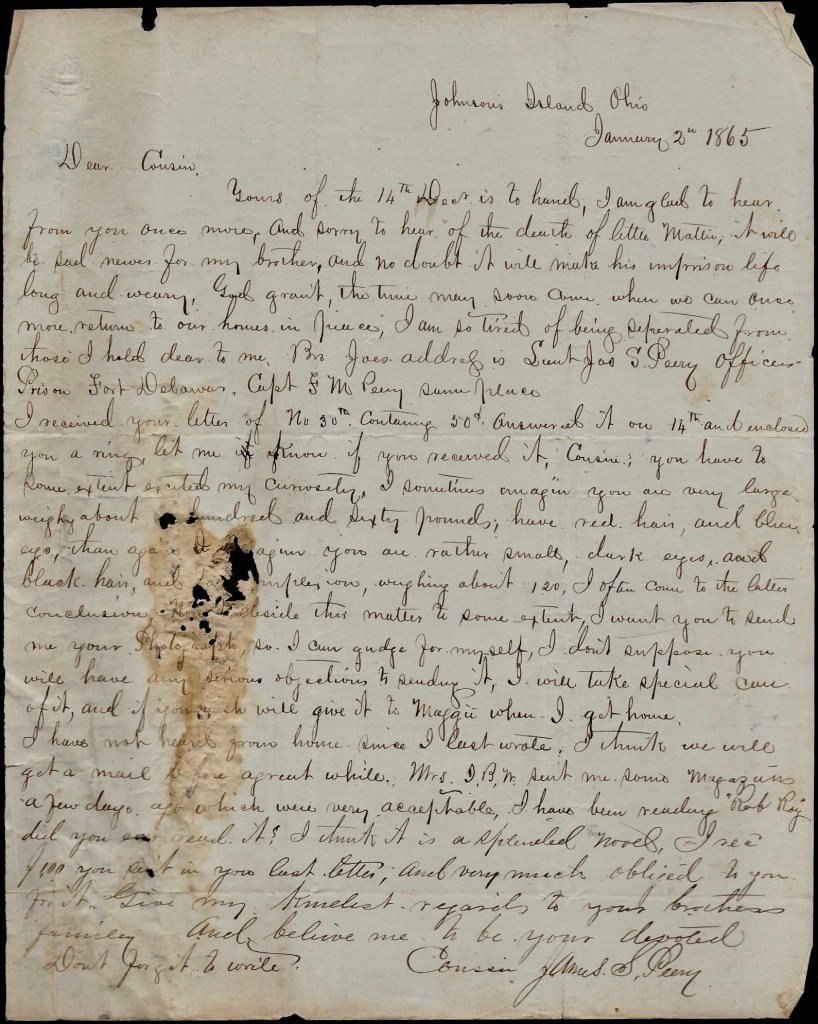 Johnson's Island Ohio
January 2nd 1865
Dear Cousin,
Yours of the 14th Decr is to hand, I am glad to hear
from you once more, and sorry to hear of the death of little Mattie, it will
be sad newes for my brother, and no doubt it will make his imprison life
long and weary, God grant, the time may soon come when we can once
more return to our homes in peiace, I am so tired of being seperated from
those I hold dear to me, Bro Joes address is Lieut Jos S. Peery Officers
Prison Fort Delawar, Capt F M Peery same place
I received your letter of No 30th Containing 50cts Answered it on 14th and enclosed
you a ring, let me know if you received it, Cousin; you have to
some extent excited my curiosety, I sometimes imagin you are very large
weighing about hundred and sixty pounds, have red hair, and blue
eys, than again I you are rather small, dark eyes, and
black hair, and weighing about 120, I often come to the latter
conclusion, Now to deside this matter to some extent, I want you to send
me your Photograph, so I can gudge for myself, I dont suppose you
will have any serious objections to sending it, I will take special care
of it, and if you wish will give it to Maggie when I get home.
I have not heard from home since I last wrote, I think we will
get a mail before agreat while, Mrs. I.B.W. sent me some Magazins
a few days ago which were very acceptable, I have been reading "Rob Roy"
did you ever read it? I think it is a splended novel, I rec
$100 you sent in you last letter, and very much obliged to you
for it. Give my kindest regards to your brothers
familey And believe me to be your devoted
Dont forget to write. Cousin James. S, Peery